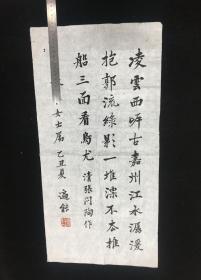 凌雲西岸古嘉州江水潺湲
抱郭流綠影一堆漂不去推
船三面看烏尤 清張問陶作
女士屬 乙丑夏 遍能